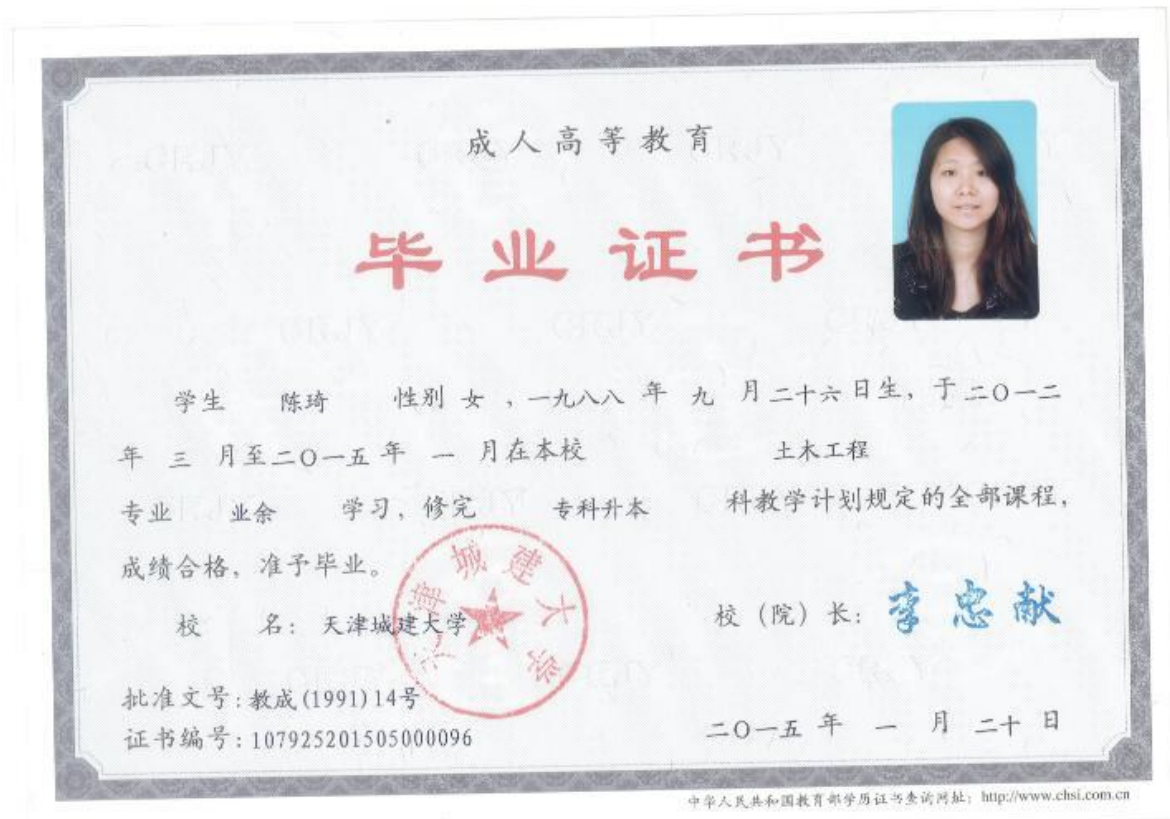 成人高等教育
毕业证书
学生 陈琦 性别 女 ，一九八八 年 九 月 二十六 日生，于 二〇一二
年 三 月至二〇一五 年 一 月在本校 土木工程
专业 业余 学习，修完 专科升本 科教学计划规定的全部课程，
成绩合格，准予毕业。
校 名：天津城建大学
天津城建大学
校（院）长：李忠献
批准文号：教成(1991)14号
证书编号：107925201505000096
二〇一五 年 一 月 二十 日
中华人民共和国教育部学历证书查询网址：http://www.chsi.com.cn